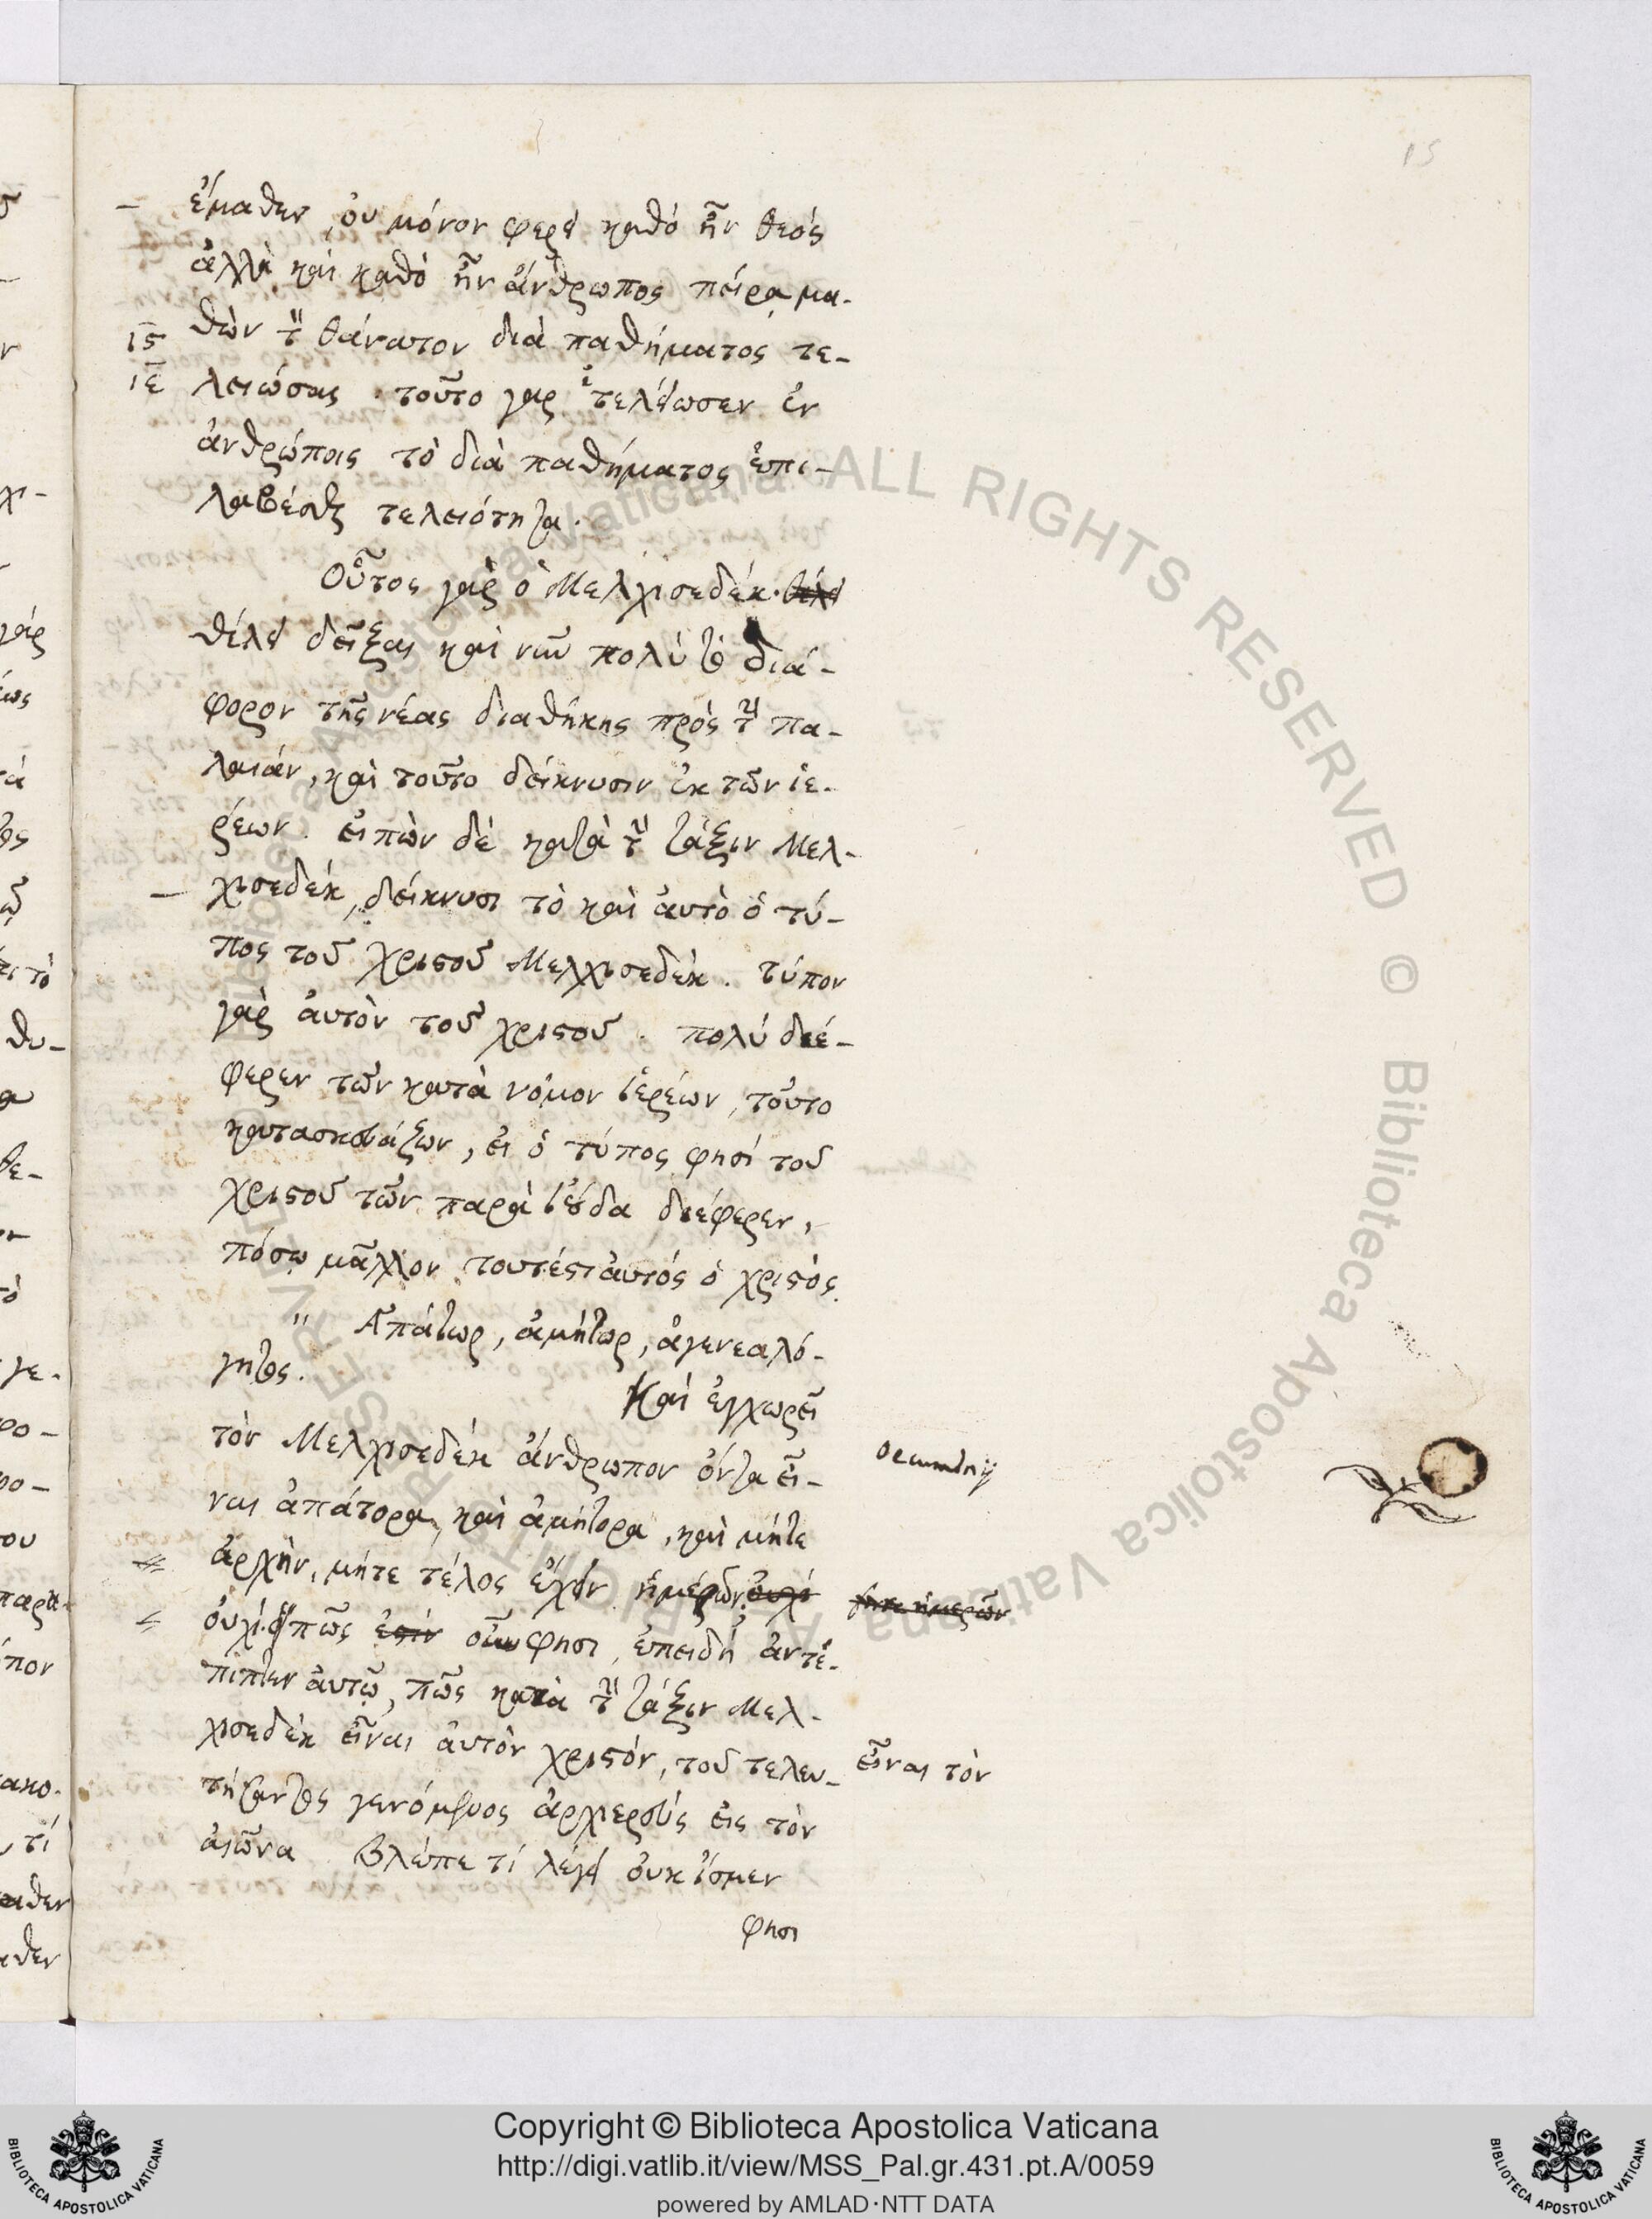 15
ἔμαθεν, ὀυ μόνον φερει καθὸ ἦν θεός
ἀλλὰ καὶ καθὸ ἦν ἄνθρωπος πεῖραν μα-
ις θὼν τὴν θάνατον διὰ παθήματος τε-
ιε λειώσας. τοῦτο γὰρ ἐτελείωσεν ἐν
ἀνθρώποις τὸ διὰ παθήματος ἐπι-
λαβέσθαι τελειότητα.
Οὗτος γὰρ ὁ Μελχισεδέκ. θέλει
θέλει δεῖξαι καὶ νῦν πολὺ τὸ διά-
φορον τῆς νέας διαθήκης πρὸς τὴν πα-
λαιάν, καὶ τοῦτο δείκνυσιν ἐκ τῶν ἱε-
ρέων. εἰπὼν δὲ κατὰ τὴν τάξιν Μελ-
χισεδέκ, δείκνυσι τὸ καὶ ἀυτὸ ὁ τύ-
πος τοῦ χριστοῦ Μελχισεδέκ. τύπον
γὰρ ἀυτὸν τοῦ χριστοῦ. πολὺ διέ-
φερεν τῶν κατὰ νόμον ἱερέων, τοῦτο
κατασκευάζων, ει ὁ τύπος φησί τοῦ
χριστοῦ τῶν παρὰ ἰούδα διέφερεν,
πόσῳ μᾶλλον τουτέστι ἀυτός ὁ χριστὸς.
" Ἀπάτωρ, ἀμήτωρ, ἀγενεαλό-
γητος.
Καὶ ἐγχωρεῖ
τὸν Μελχισεδέκ ἄνθρωπον ὄντα εἶ-
ναι ἀπάτορα, καὶ ἀμήτορα, καὶ μήτε
ἀρχὴν, μήτε τέλος ἔχειν ἡμερῶν. ὀυχί
ὀυχί. πῶς οὖν φησι, ἐπειδὴ ἀντέ-
πιπτεν ἀυτῷ, πῶς κατὰ τὴν τάξιν Μελ-
χισεδέκ εἶναι ἀυτὸν χριστόν, τοῦ τελευ-
τήσαντος γενόμενος ἀρχιερεύς εἰς τὸν
ἀιῶνα βλέπε τί λέγει ὀυκ ἴσμεν
φησι
oecumenij
εἶναι τὸν
Copyright © Biblioteca Apostolica Vaticana
http://digi.vatlib.it/view/MSS_Pal.gr.431.pt.A/0059
powered by AMLAD·NTT DATA